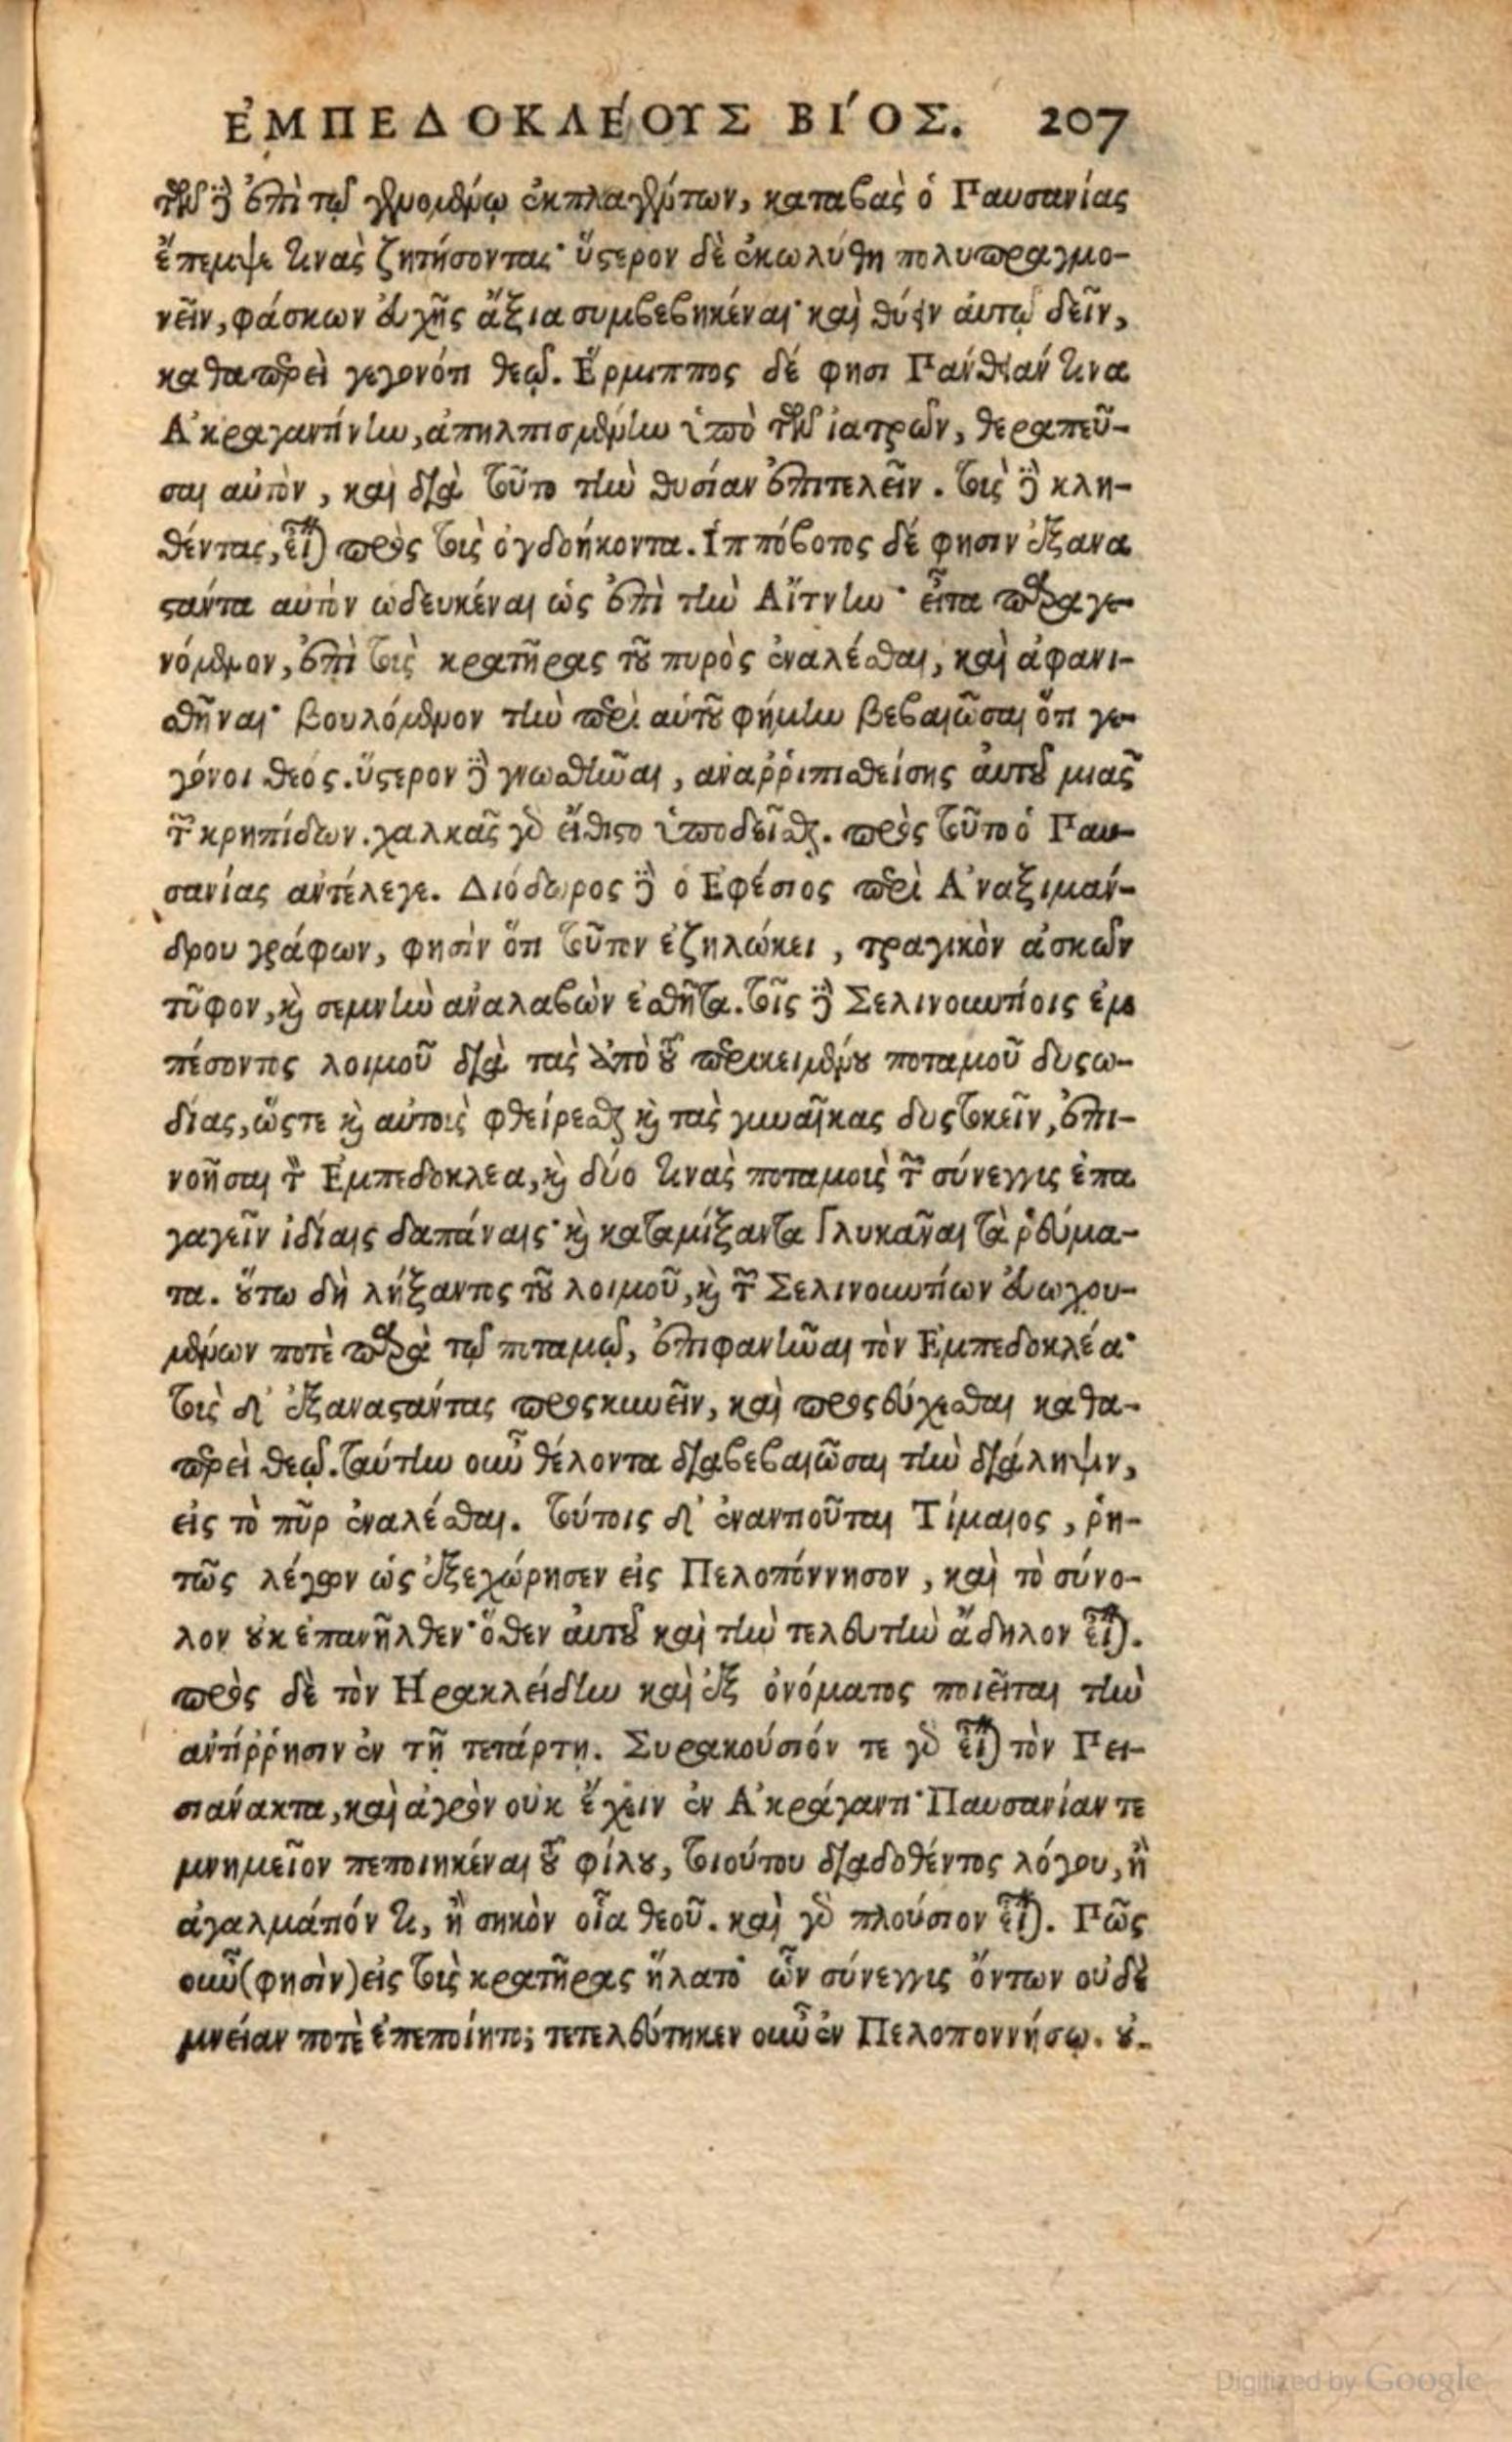 ἘΜΠΕΔΟΚΛΈΟΥΣ ΒΊΟΣ. 207
τῶν δὲ ἐπὶ τῷ γενομένῳ ἐκπλαγέντων, καταβὰς ὁ Παυσανίας
ἔπεμψε τινὰς ζητήσοντας· ὕστερον δὲ ἐκωλύθη πολυπραγμο-
νεῖν, φάσκων εὐχῆς ἄξια συμβεβηκέναι· καὶ θύειν αὐτῷ δεῖν,
καθαπερεὶ γεγονότι θεῷ. Ἕρμιππος δέ φησι Πάνθειάν τινα
Ἀκραγαντίνην, ἀπηλπισμένην ὑπὸ τῶν ἰατρῶν, θεραπεῦ-
σαι αὐτὸν, καὶ διὰ τοῦτο τὴν θυσίαν ἐπιτελεῖν. τοὺς δὲ κλη-
θέντας, εἶναι πρὸς τοὺς ὀγδοήκοντα. Ἱππόβοτος δέ φησιν ἐξανα
στάντα αὐτὸν ὡδευκέναι ὡς ἐπὶ τὴν Αἴτνην· εἶτα παραγε-
νόμενον, ἐπὶ τοὺς κρατῆρας τοῦ πυρὸς ἐναλέσθαι, καὶ ἀφανι-
σθῆναι· βουλόμενον τὴν περὶ αὑτοῦ φήμην βεβαιῶσαι ὅτι γε-
γόνοι θεός. ὕστερον δὲ γνωσθῆναι, ἀναῤῥιπισθείσης αὐτοῦ μιᾶς
τῶν κρηπίδων. χαλκᾶς γὰρ εἴθιστο ὑποδεῖσθαι. πρὸς τοῦτο ὁ Παυ-
σανίας ἀντέλεγε. Διόδωρος δὲ ὁ Ἐφέσιος περὶ Ἀναξιμάν-
δρου γράφων, φησὶν ὅτι τοῦτον ἐζηλώκει, τραγικὸν ἀσκῶν
τῦφον, καὶ σεμνὴν ἀναλαβὼν ἐσθῆτα. τοῖς δὲ Σελινουντίοις ἐμ
πέσοντος λοιμοῦ διὰ τὰς ἀπὸ τοῦ περικειμένου ποταμοῦ δυσω-
δίας, ὥστε καὶ αὐτοὺς φθείρεσθαι καὶ τὰς γυναῖκας δυστοκεῖν, ἐπι-
νοῆσαι τὸν Ἐμπεδοκλέα, καὶ δύο τινὰς ποταμοὺς τῶν σύνεγγις ἐπα
γαγεῖν ἰδίαις δαπάναις· καὶ καταμίξαντα γλυκᾶναι τὰ ῥεύμα-
τα. οὕτω δὴ λήξαντος τοῦ λοιμοῦ, καὶ τῶν Σελινουντίων εὐωχου-
μένων ποτὲ παρὰ τῷ ποταμῷ, ἐπιφανῆναι τὸν Ἐμπεδοκλέα·
τοὺς δ' ἐξαναστάντας προσκυνεῖν, καὶ προσεύχεσθαι καθα-
περεὶ θεῷ. ταύτην οὖν θέλοντα διαβεβαιῶσαι τὴν διάληψιν,
εἰς τὸ πῦρ ἐναλέσθαι. τούτοις δ' ἐναντιοῦται Τίμαιος, ῥη-
τῶς λέγων ὡς ἐξεχώρησεν εἰς Πελοπόννησον, καὶ τὸ σύνο-
λον οὐκ ἐπανῆλθεν· ὅθεν αὐτοῦ καὶ τὴν τελευτὴν ἄδηλον εἶναι.
πρὸς δὲ τὸν Ἡρακλείδην καὶ ἐξ ὀνόματος ποιεῖται τὴν
ἀντίῤῥησιν ἐν τῇ τετάρτῃ. Συρακούσιόν τε γὰρ εἶναι τὸν Πει-
σιάνακτα, καὶ ἀγρὸν οὐκ ἔχειν ἐν Ἀκράγαντι· Παυσανίαν τε
μνημεῖον πεποιηκέναι τοῦ φίλου, τοιούτου διαδοθέντος λόγου, ἢ
ἀγαλμάτιόν τι, ἢ σηκὸν οἷα θεοῦ. καὶ γὰρ πλούσιον εἶναι. Πῶς
οὖν (φησὶν) εἰς τοὺς κρατῆρας ἥλατο· ὧν σύνεγγις ὄντων οὐδὲ
μνείαν ποτὲ ἐπεποίητο; τετελεύτηκεν οὖν ἐν Πελοποννήσῳ. οὐ-
Digitized by Google